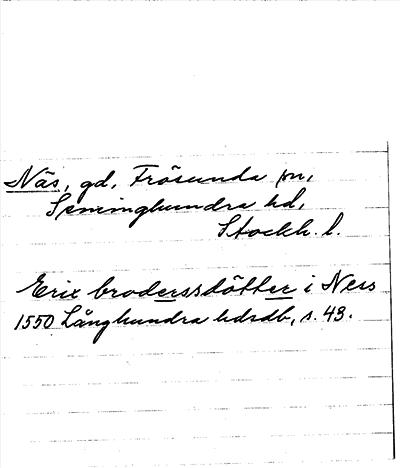 Näs, gd, Frösunda sn,
Seminghundra hd,
Stockh. l.
Erix broderssdötter i Ness
1550 Långhundra hdrdb, s. 43.